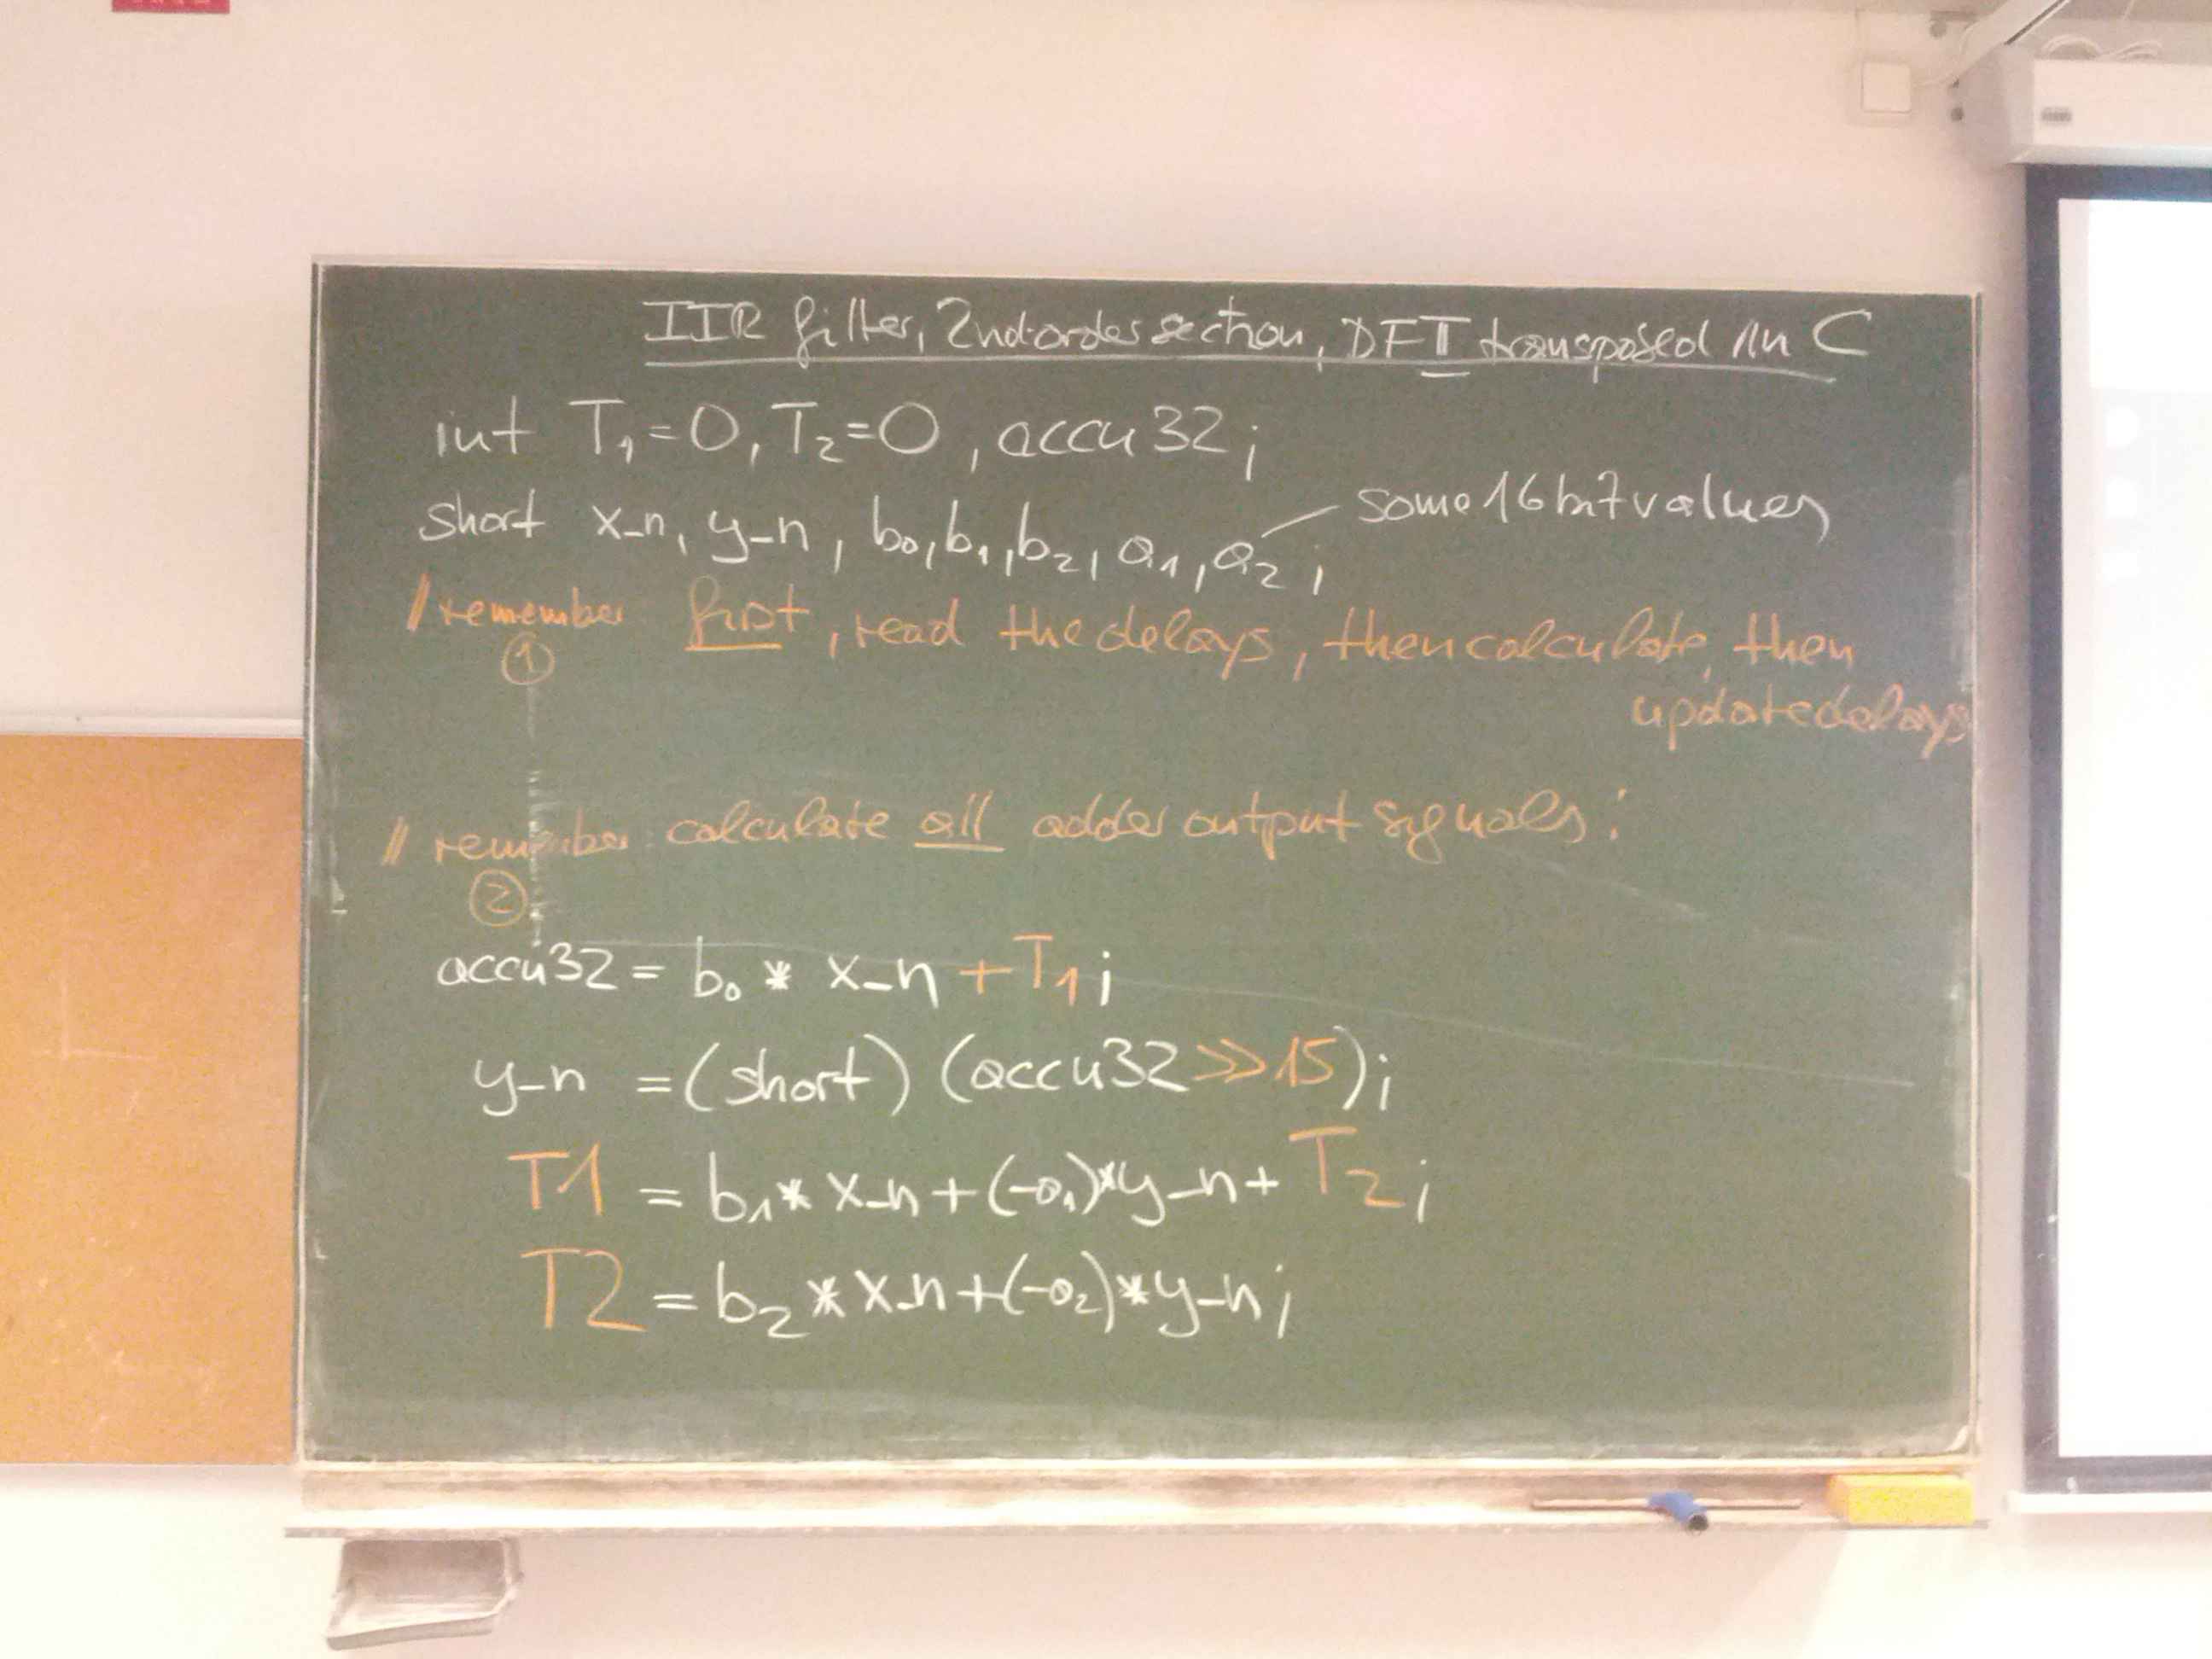 IIR filter, 2nd order section, DFI transposed in C
int T₁=0, T₂=0, accu32;
short x_n, y_n, b₀, b₁, b₂, a₁, a₂;
some 16 bit values
/ remember first, read the delays, then calculate, then
①
update delays
// remember calculate all adder output signals:
②
accu32 = b₀ * x_n + T₁;
y_n = (short) (accu32 >> 15);
T1 = b₁* x_n + (-a₁)*y_n + T₂;
T2 = b₂ * x_n + (-a₂)*y_n;